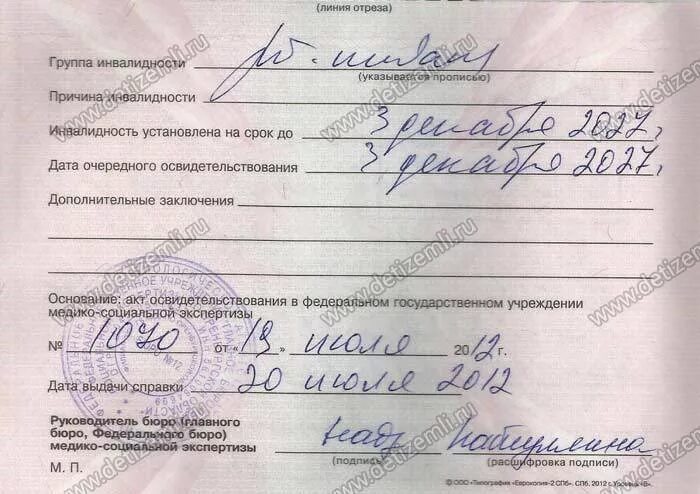 (линия отреза)
Группа инвалидности реб.-инвалид
(указывается прописью)
Причина инвалидности
Инвалидность установлена на срок до 3 декабря 2027.
Дата очередного освидетельствования 3 декабря 2027.
Дополнительные заключения
Основание: акт освидетельствования в федеральном государственном учреждении
медико-социальной экспертизы
№ 1070 от «19» июля 2012 г.
Дата выдачи справки 20 июля 2012
Руководитель бюро (главного
бюро, Федерального бюро)
медико-социальной экспертизы
(подпись) (расшифровка подписи)
М. П.
© ООО «Типография «Еврокопия-2 СПб». СПб, 2012 г. Уровень «В».
www.detizemli.ru